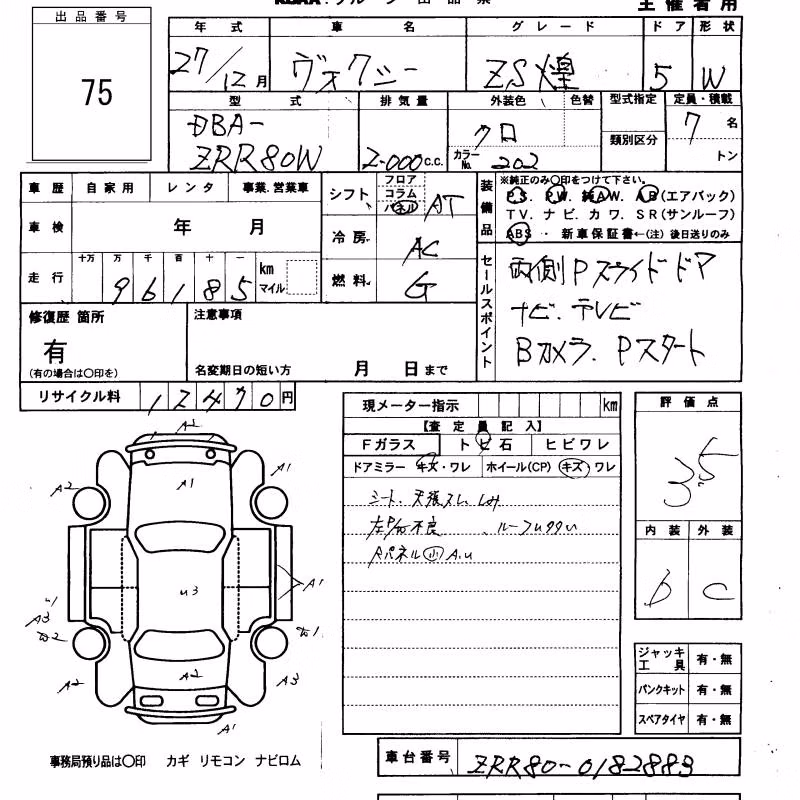 主催者用
出品番号
75
年式 車名 グレード ドア 形状
27/12月 ヴォクシー ZS煌 5 W
型式 排気量 外装色 色替 型式指定 定員・積載
DBA-
ZRR80W 2-000c.c. クロ カラーNo. 202 類別区分 7名
トン
車歴 自家用 レンタ 事業.営業車
車検 年 月
走行 十万 万 千 百 十 一
9 6 1 8 5 km マイル
シフト フロア コラム パネル AT
冷房 AC
燃料 G
装備品 ※純正のみ○印をつけて下さい。
P.S. P.W. 純A.W. A.B(エアバック)
T V. ナビ. カワ. S R(サンルーフ)
ABS ・ 新車保証書←(注) 後日送りのみ
セールスポイント
両側Pスライドドア
ナビ. テレビ
Bカメラ. Pスタート
修復歴 箇所
有
(有の場合は○印を)
注意事項
名変期日の短い方 月 日まで
リサイクル料 12470円
現メーター指示 km
【査定員記入】
Fガラス トビ石 ヒビワレ
ドアミラー キズ・ワレ ホイール(CP) キズ・ワレ
シート、天張スレ、しみ
不良 、ルーフ
Aパネル小A.u
評価点
3.5
内装 外装
b C
A2
A1
A1
A2
A1
u3
A1
A3
A2
A2
A3
A1
ジャッキ工具 有・無
パンクキット 有・無
スペアタイヤ 有・無
事務局預り品は○印 カギ リモコン ナビロム
車台番号 ZRR80-0182883